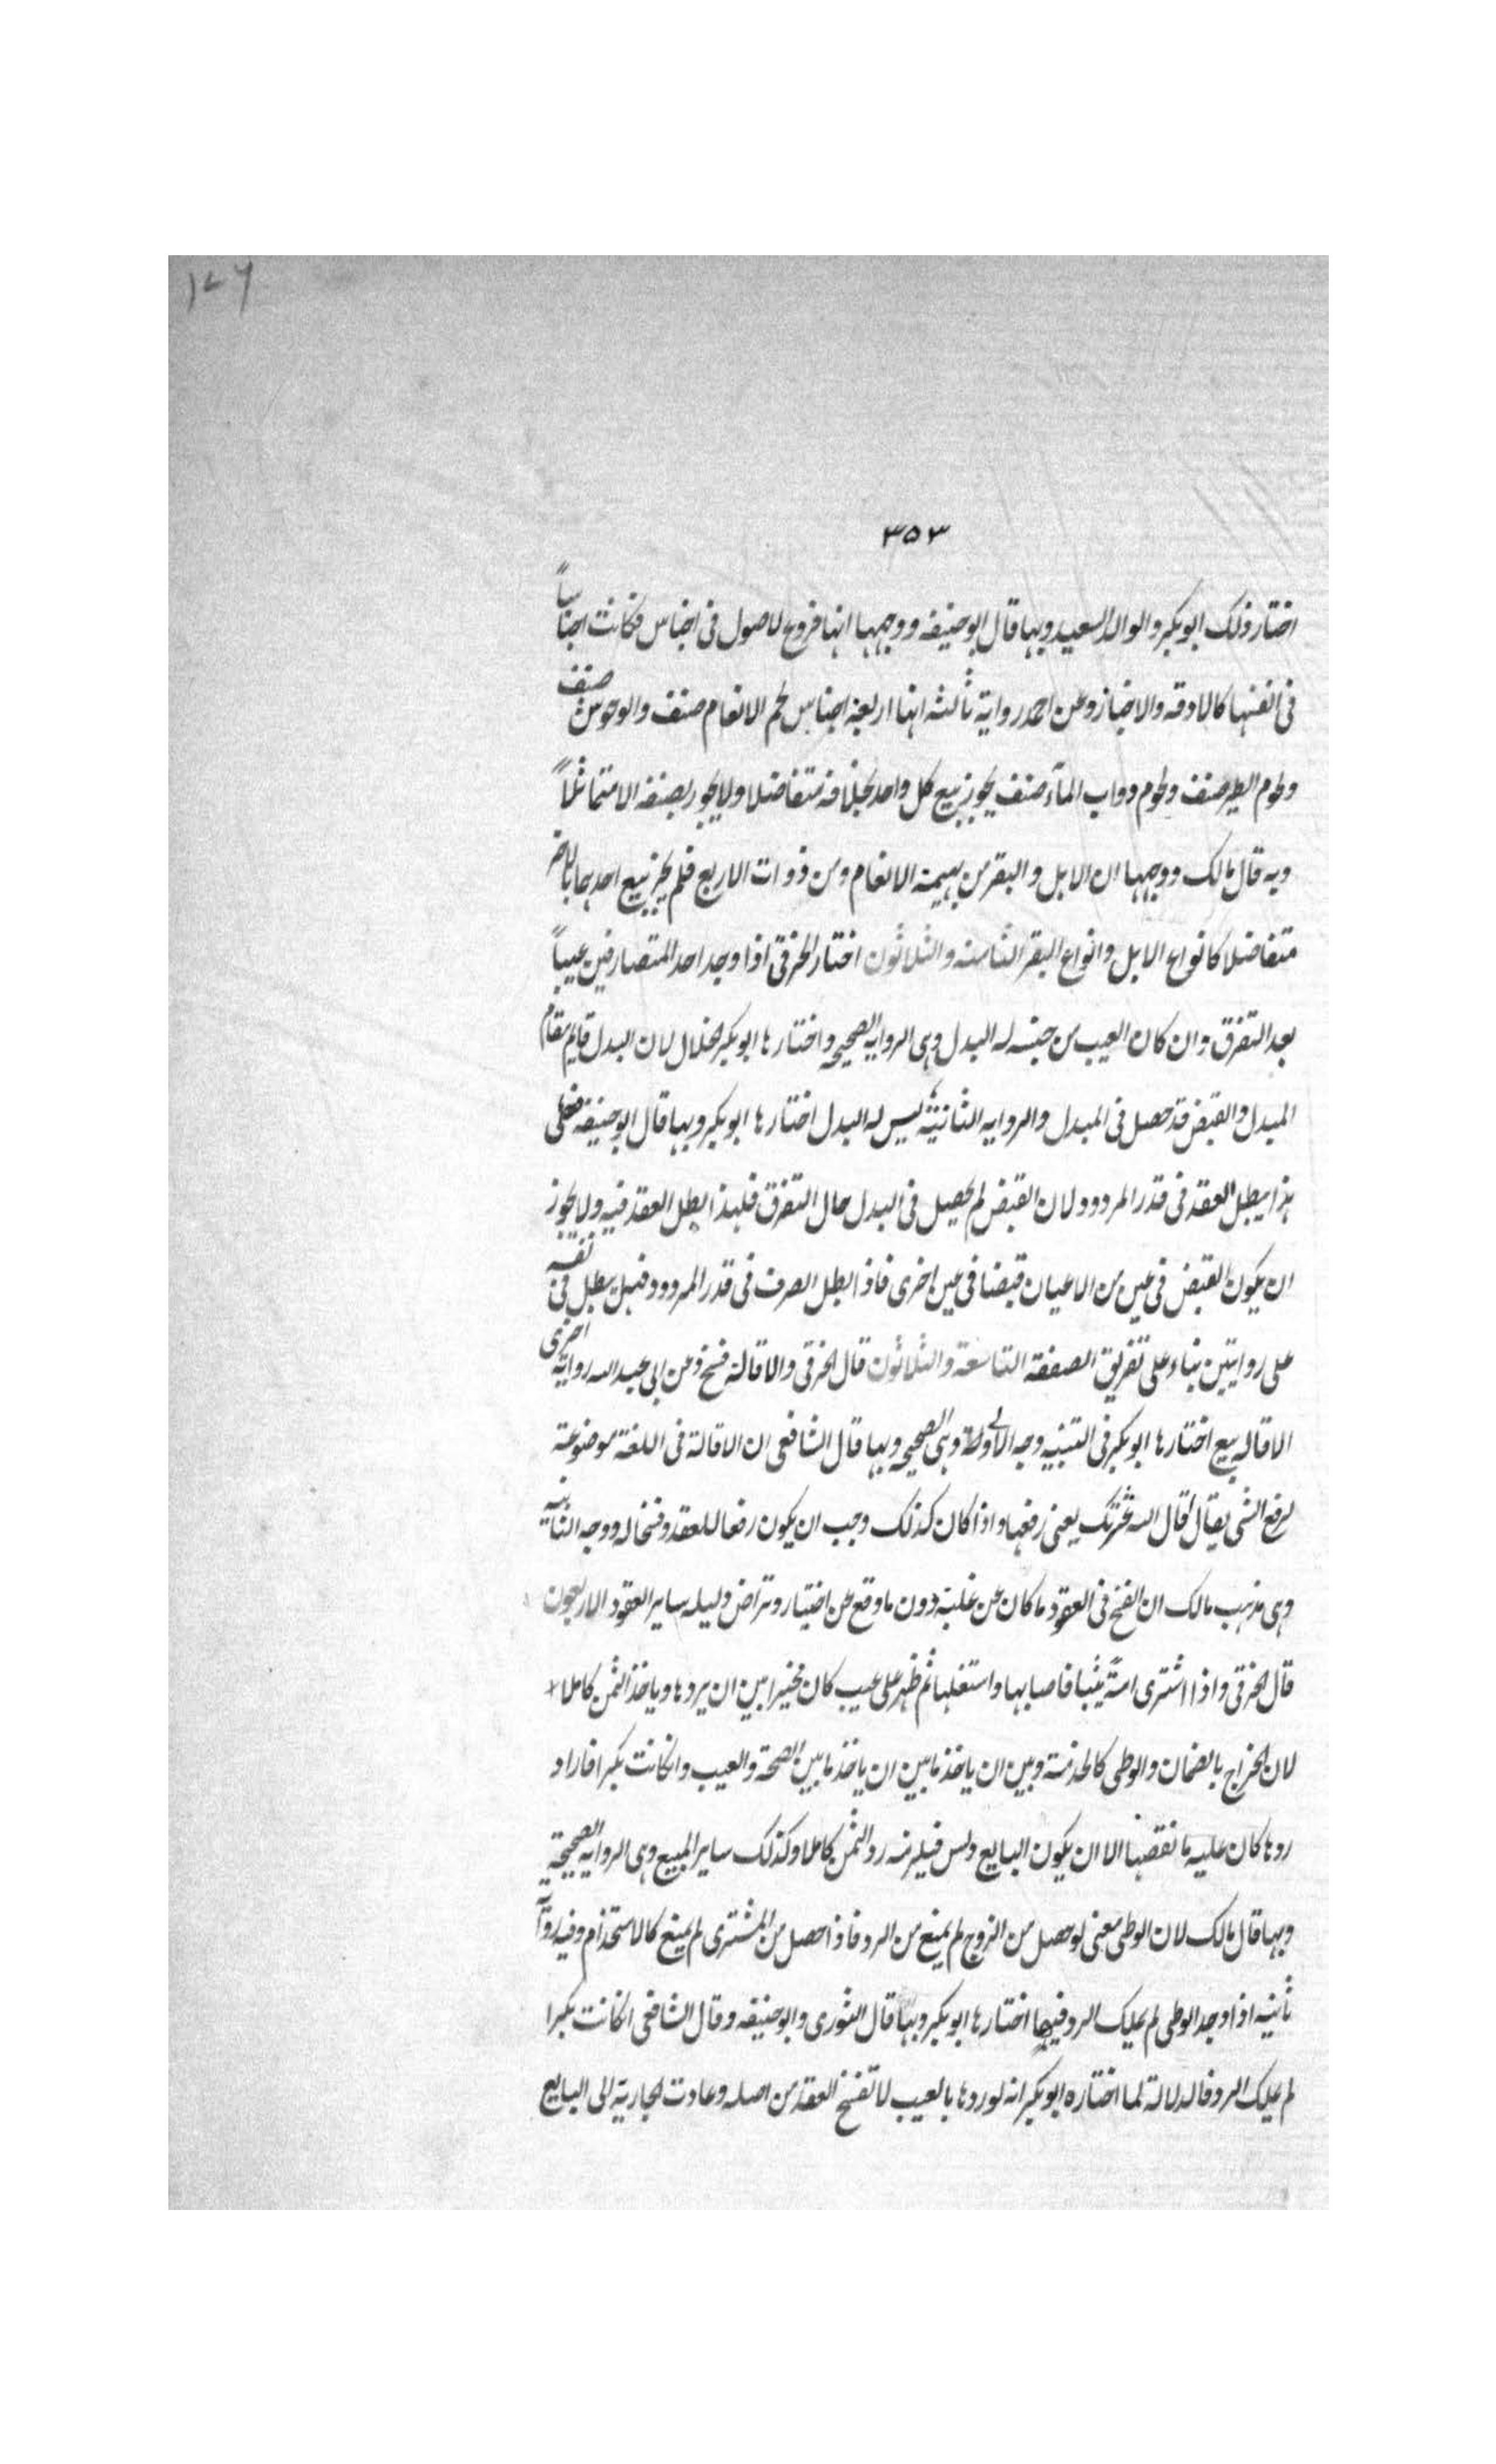 ١٧٦
٣٥٣
اختار ذلك ابو بكر والوالد السعيد وبها قال ابو حنيفه ووجهها انها فروع لاصول فى اجناس فكانت اجناساً
فى انفسها كالادقه والاخباز وعن احمد رواية ثالثه انها اربعة اجناس لحم الانعام صنف والوحوش صنف
ولحوم الطير صنف ولحوم دواب المآء صنف يجوز بيع كل واحد بخلافه متفاضلا ولا يجوز بصنفه الا متماثلاً
وبه قال مالك ووجهها ان الابل والبقر من بهيمة الانعام ومن ذوات الاربع فلم يجز بيع احدهما بالاخر
متفاضلا كانواع الابل وانواع البقر الثامنه والثلاثون اختار الخرقى اذا وجد احد المتصارفين عيباً
بعد التفرق وان كان العيب من جنسه له البدل وهى الروايه الصحيحه واختارها ابو بكر الخلال لان البدل قايم مقام
المبدل والقبض قد حصل فى المبدل والروايه الثانيّه ليس له البدل اختارها ابو بكر وبها قال ابو حنيفه فعلى
هذا يبطل العقد فى قدر المردود لان القبض لم يحصل فى البدل حال التفرق فلهذا بطل العقد فيه ولا يجوز
ان يكون القبض فى عين من الاعيان قبضا فى عين اخرى فاذا بطل الصرف فى قدر المردود فهل يبطل فى نفسه
على روايتين بناء على تفريق الصفقه التاسعة والثلاثون قال الخرقى والاقالة فسخ وعن ابى عبد الله رواية اخرى
الاقاله بيع اختارها ابو بكر فى التنبيه وجه الاولى وهى الصحيحه وبها قال الشافعى ان الاقالة فى اللغة موضوعة
لرفع الشى يقال اقال الله عثرتك يعنى رفعها واذا كان كذلك وجب ان يكون رفعا للعقد وفسخا له ووجه الثانيه
وهى مذهب مالك ان الفسخ فى العقود ما كان عن غلبة دون ما وقع عن اختيار وتراض دليله ساير العقود الاربعون
قال الخرقى واذا اشترى امةً ثيبا فاصابها واستغلها ثم ظهر على عيب كان مخيرا بين ان يردها وياخذ الثمن كاملا
لان الخراج بالضمان والوطى كالخدمة وبين ان ياخذ ما بين ان ياخذ ما بين الصحة والعيب وان كانت بكرا فاراد
ردها كان عليه ما نقصها الا ان يكون البايع دلس فيلزمه رد الثمن كاملا وكذلك ساير المبيع وهى الروايه الصحيحة
وبها قال مالك لان الوطى معنى لو حصل من الزوج لم يمنع من الرد فاذا حصل من المشترى لم يمنع كالاستخدام وفيه رواية
ثانيه اذا وجد الوطى لم يملك الرد فيها اختارها ابو بكر وبها قال الثورى وابو حنيفه وقال الشافعى ان كانت بكرا
لم يملك الرد فالدلالة لما اختاره ابو بكر انه لو ردها بالعيب لانفسخ العقد من اصله وعادت الجارية الى البايع